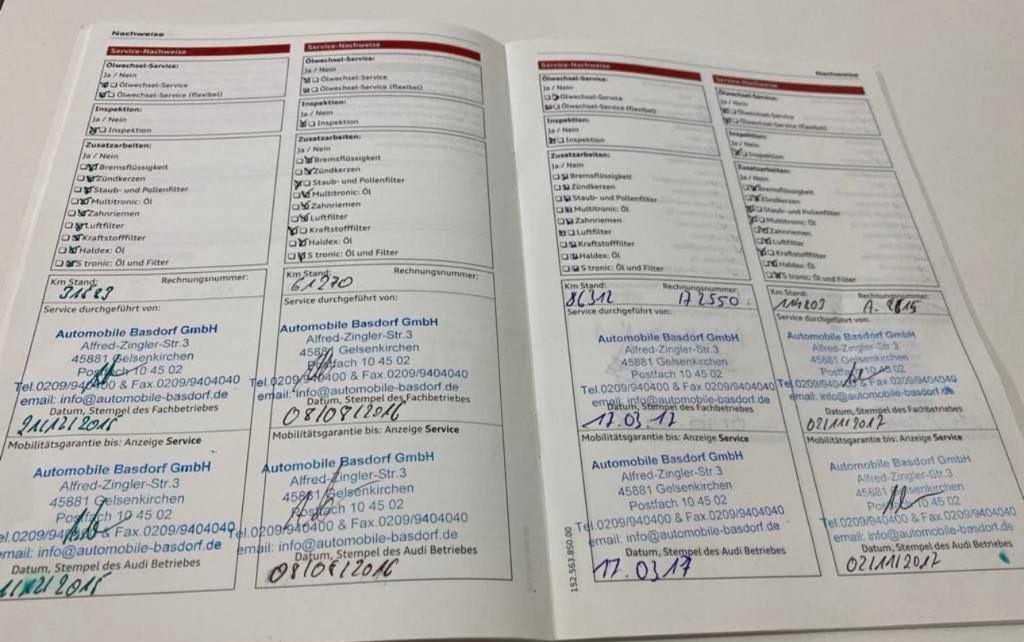 Nachweise
Service-Nachweise
Ölwechsel-Service:
Ja / Nein
Ölwechsel-Service
Ölwechsel-Service (flexibel)
Inspektion:
Ja / Nein
Inspektion
Zusatzarbeiten:
Ja / Nein
Bremsflüssigkeit
Zündkerzen
Staub- und Pollenfilter
Multitronic: Öl
Zahnriemen
Luftfilter
Kraftstofffilter
Haldex: Öl
S tronic: Öl und Filter
Km Stand: Rechnungsnummer:
Service durchgeführt von:
Automobile Basdorf GmbH
Alfred-Zingler-Str.3
45881 Gelsenkirchen
Postfach 10 45 02
Tel.0209/940400 & Fax.0209/9404040
email: info@automobile-basdorf.de
Datum, Stempel des Fachbetriebes
Mobilitätsgarantie bis: Anzeige Service
Automobile Basdorf GmbH
Alfred-Zingler-Str.3
45881 Gelsenkirchen
Postfach 10 45 02
Tel.0209/940400 & Fax.0209/9404040
email: info@automobile-basdorf.de
Datum, Stempel des Audi Betriebes
Service-Nachweise
Ölwechsel-Service:
Ja / Nein
Ölwechsel-Service
Ölwechsel-Service (flexibel)
Inspektion:
Ja / Nein
Inspektion
Zusatzarbeiten:
Ja / Nein
Bremsflüssigkeit
Zündkerzen
Staub- und Pollenfilter
Multitronic: Öl
Zahnriemen
Luftfilter
Kraftstofffilter
Haldex: Öl
S tronic: Öl und Filter
Km Stand: Rechnungsnummer:
61270
Service durchgeführt von:
Automobile Basdorf GmbH
Alfred-Zingler-Str.3
45881 Gelsenkirchen
Postfach 10 45 02
Tel.0209/940400 & Fax.0209/9404040
email: info@automobile-basdorf.de
Datum, Stempel des Fachbetriebes
08/08/2016
Mobilitätsgarantie bis: Anzeige Service
Automobile Basdorf GmbH
Alfred-Zingler-Str.3
45881 Gelsenkirchen
Postfach 10 45 02
Tel.0209/940400 & Fax.0209/9404040
email: info@automobile-basdorf.de
Datum, Stempel des Audi Betriebes
08/08/2016
Service-Nachweise
Ölwechsel-Service:
Ja / Nein
Ölwechsel-Service
Ölwechsel-Service (flexibel)
Inspektion:
Ja / Nein
Inspektion
Zusatzarbeiten:
Ja / Nein
Bremsflüssigkeit
Zündkerzen
Staub- und Pollenfilter
Multitronic: Öl
Zahnriemen
Luftfilter
Kraftstofffilter
Haldex: Öl
S tronic: Öl und Filter
Km Stand: Rechnungsnummer:
86312 A2550
Service durchgeführt von:
Automobile Basdorf GmbH
Alfred-Zingler-Str.3
45881 Gelsenkirchen
Postfach 10 45 02
Tel.0209/940400 & Fax.0209/9404040
email: info@automobile-basdorf.de
Datum, Stempel des Fachbetriebes
17.03.17
Mobilitätsgarantie bis: Anzeige Service
Automobile Basdorf GmbH
Alfred-Zingler-Str.3
45881 Gelsenkirchen
Postfach 10 45 02
Tel.0209/940400 & Fax.0209/9404040
email: info@automobile-basdorf.de
Datum, Stempel des Audi Betriebes
17.03.17
152.563.850.00
Nachweise
Service-Nachweise
Ölwechsel-Service:
Ja / Nein
Ölwechsel-Service
Ölwechsel-Service (flexibel)
Inspektion:
Ja / Nein
Inspektion
Zusatzarbeiten:
Ja / Nein
Bremsflüssigkeit
Zündkerzen
Staub- und Pollenfilter
Multitronic: Öl
Zahnriemen
Luftfilter
Kraftstofffilter
Haldex: Öl
S tronic: Öl und Filter
Km Stand: Rechnungsnummer:
Service durchgeführt von:
Automobile Basdorf GmbH
Alfred-Zingler-Str.3
45881 Gelsenkirchen
Postfach 10 45 02
Tel.0209/940400 & Fax.0209/9404040
email: info@automobile-basdorf.de
Datum, Stempel des Fachbetriebes
02/11/2017
Mobilitätsgarantie bis: Anzeige Service
Automobile Basdorf GmbH
Alfred-Zingler-Str.3
45881 Gelsenkirchen
Postfach 10 45 02
Tel.0209/940400 & Fax.0209/9404040
email: info@automobile-basdorf.de
Datum, Stempel des Audi Betriebes
02/11/2017